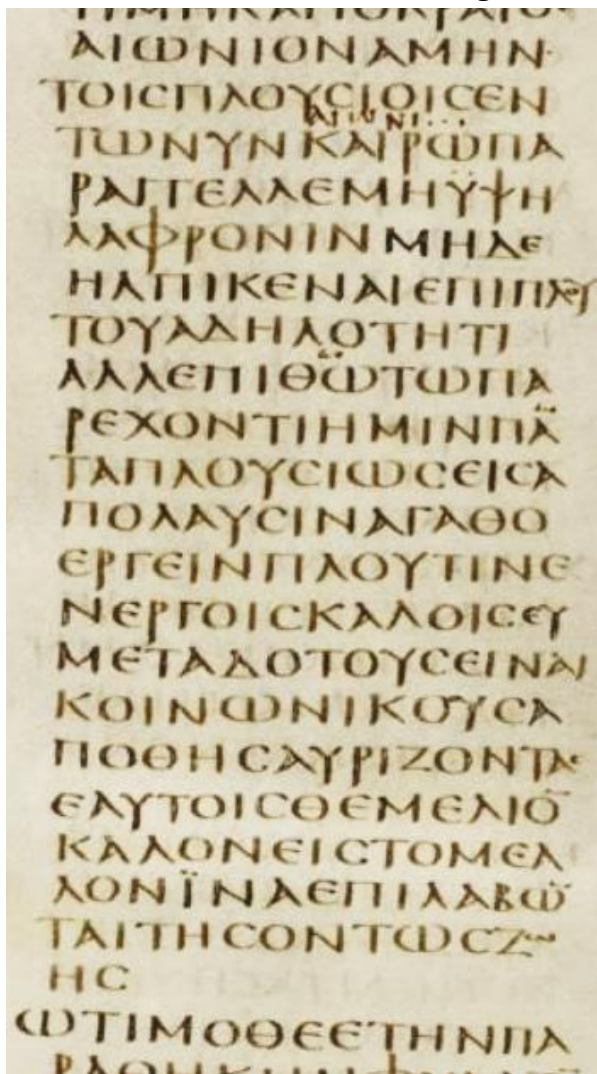 ΑΙΩΝΙΟΝΑΜΗΝ·
ΤΟΙϹΠΛΟΥϹΙΟΙϹΕΝ
ΑΙΩΝΙ...
ΤΩΝΥΝΚΑΙΡΩΠΑ
ΡΑΓΓΕΛΛΕΜΗΫΨΗ
ΛΑΦΡΟΝΙΝΜΗΔΕ
ΗΛΠΙΚΕΝΑΙΕΠΙΠΛΟΥ
ΤΟΥΑΔΗΛΟΤΗΤΙ
ΑΛΛΕΠΙΘΩΤΩΠΑ
ΡΕΧΟΝΤΙΗΜΙΝΠΑ̅
ΤΑΠΛΟΥϹΙΩϹΕΙϹΑ
ΠΟΛΑΥϹΙΝΑΓΑΘΟ
ΕΡΓΕΙΝΠΛΟΥΤΙΝΕ
ΝΕΡΓΟΙϹΚΑΛΟΙϹΕΥ
ΜΕΤΑΔΟΤΟΥϹΕΙΝΑΙ
ΚΟΙΝΩΝΙΚΟΥϹΑ
ΠΟΘΗϹΑΥΡΙΖΟΝΤΑϹ
ΕΑΥΤΟΙϹΘΕΜΕΛΙΟ̅
ΚΑΛΟΝΕΙϹΤΟΜΕΛ
ΛΟΝΪΝΑΕΠΙΛΑΒΩ̅
ΤΑΙΤΗϹΟΝΤΩϹΖω
ΗϹ
ΩΤΙΜΟΘΕΕΤΗΝΠΑ